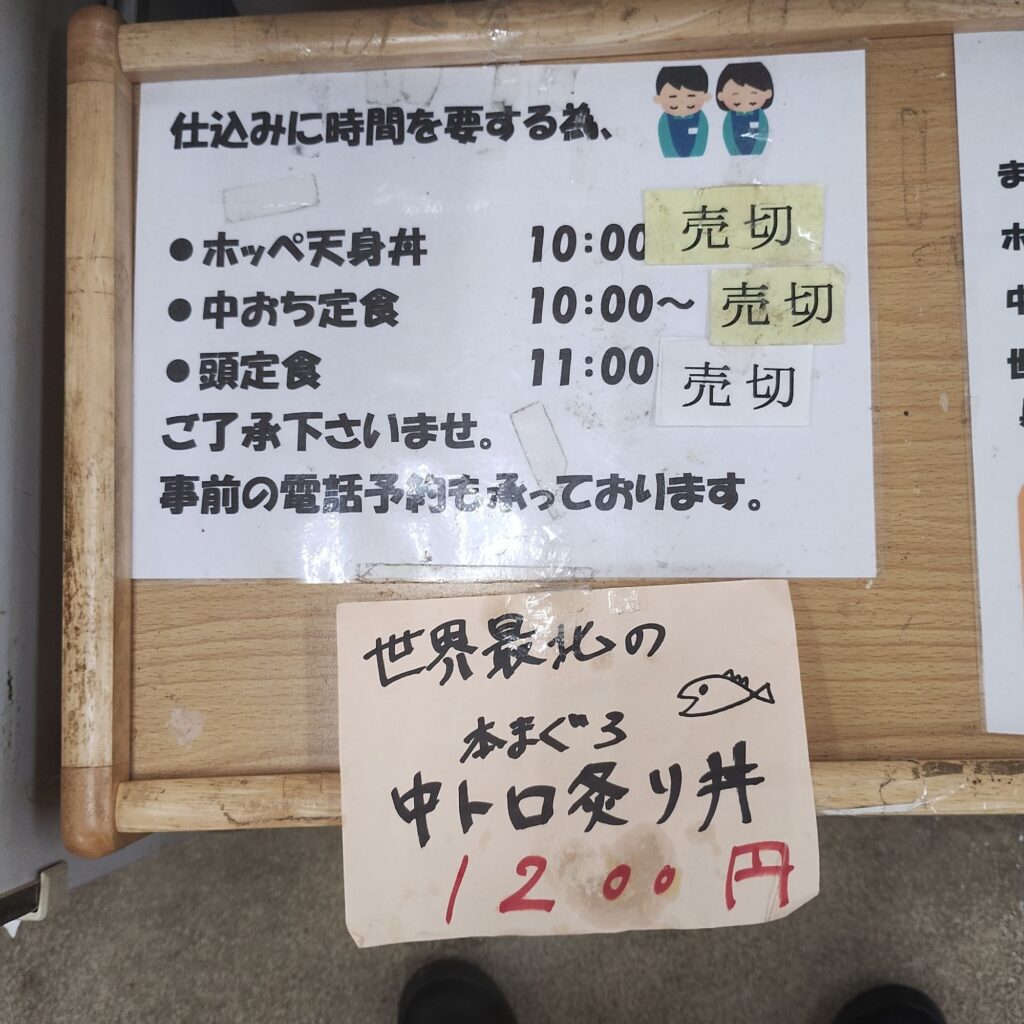 仕込みに時間を要する為、
●ホッペ天身丼 10:00 売切
●中おち定食 10:00～ 売切
●頭定食 11:00 売切
ご了承下さいませ。
事前の電話予約も承っております。
世界最北の
本まぐろ
中トロ炙り丼
1200円
ま
ホ
中
世